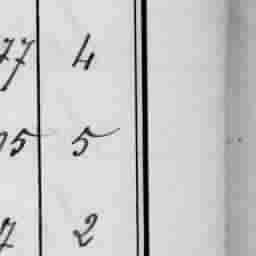 77 4
05 5
7 2